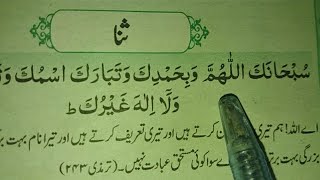 ثنا
سُبْحَانَكَ اللّٰهُمَّ وَبِحَمْدِكَ وَتَبَارَكَ اسْمُكَ
وَلَآ اِلٰهَ غَيْرُكَ ط
اے اللہ! ہم تیری کرتے ہیں اور تیری تعریف کرتے ہیں اور تیرا نام بہت
بزرگی بہت سوا کوئی مستحق عبادت نہیں۔ (ترمذی ۲۴۳)